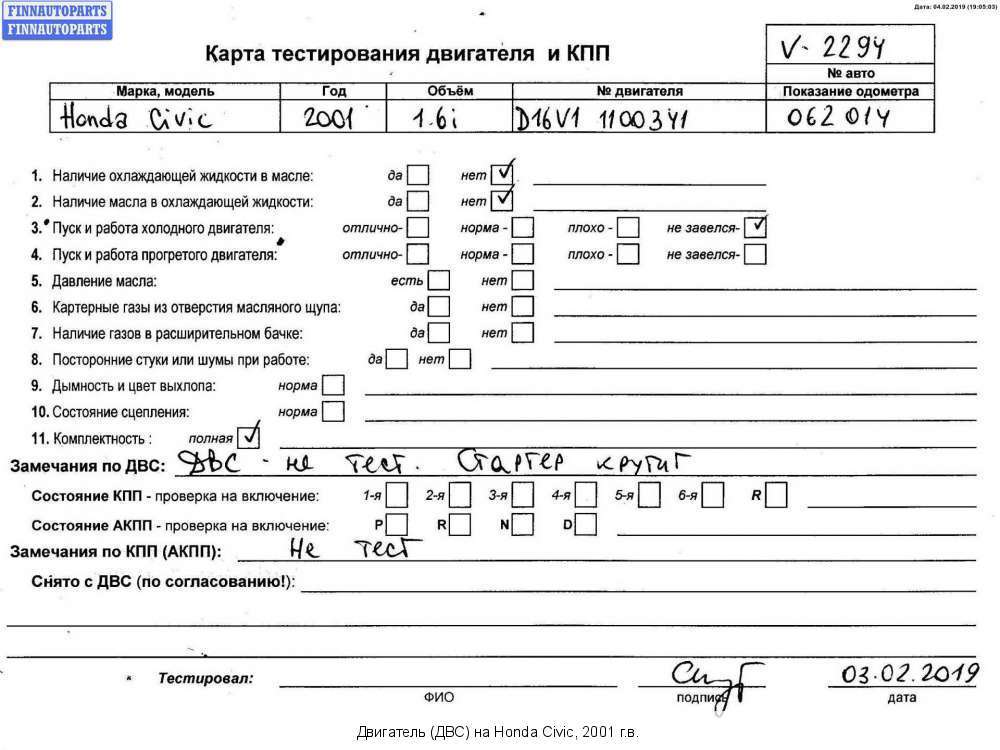 Дата: 04.02.2019 (19:05:03)
FINNAUTOPARTS
FINNAUTOPARTS
Карта тестирования двигателя и КПП
V-2294
№ авто
Марка, модель Год Объём № двигателя Показание одометра
Honda Civic 2001 1.6i D16V1 1100341 062014
1. Наличие охлаждающей жидкости в масле: да нет ✓
2. Наличие масла в охлаждающей жидкости: да нет ✓
3. Пуск и работа холодного двигателя: отлично- норма - плохо - не завелся- ✓
4. Пуск и работа прогретого двигателя: отлично- норма - плохо - не завелся-
5. Давление масла: есть нет
6. Картерные газы из отверстия масляного щупа: да нет
7. Наличие газов в расширительном бачке: да нет
8. Посторонние стуки или шумы при работе: да нет
9. Дымность и цвет выхлопа: норма
10. Состояние сцепления: норма
11. Комплектность : полная ✓
Замечания по ДВС: ДВС - не тест. Стартер крутит
Состояние КПП - проверка на включение: 1-я 2-я 3-я 4-я 5-я 6-я R
Состояние АКПП - проверка на включение: P R N D
Замечания по КПП (АКПП): Не тест
Снято с ДВС (по согласованию!):
Тестировал: 03.02.2019
ФИО подпись дата
Двигатель (ДВС) на Honda Civic, 2001 г.в.